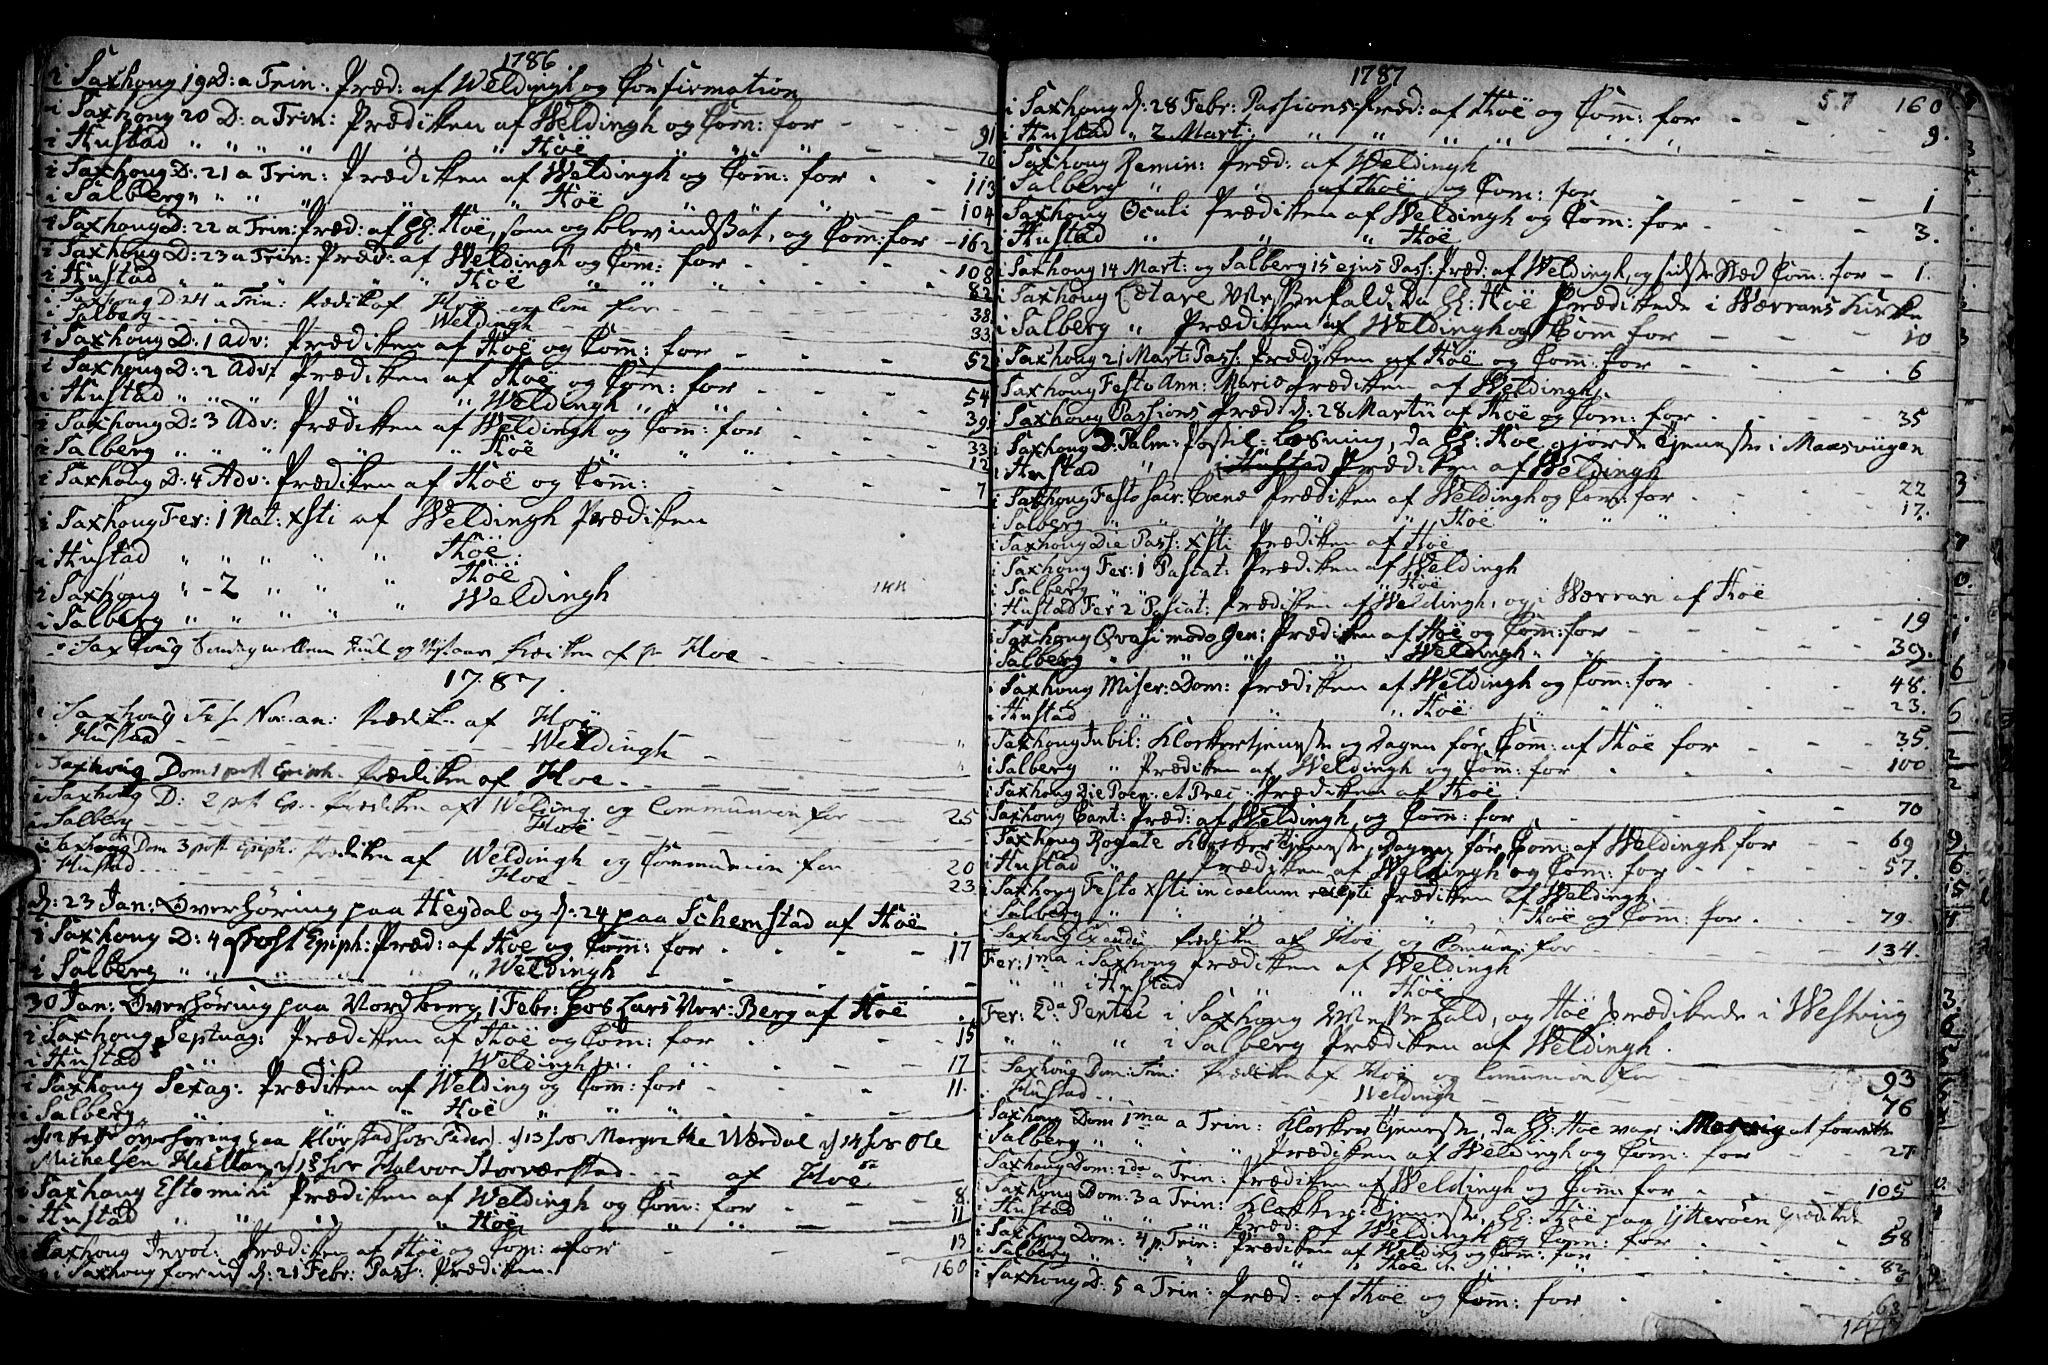 1786
i Saxhoug 19 D: a Trin: Præd: af Weldingh og Confirmation
i Saxhoug 20 D: a Trin: Prædiken af Weldingh og Com̄: for - - - 91
i Hustad " " " " " " Hoë " " " 70
i Saxhoug D: 21 a Trin: Prædiken af Weldingh og Com̄: for - - 113
i Salberg " " " " " Hoë " " " 104
i Saxhoug D: 22 a Trin: Præd: af Hr: Hoë, som og blev indsat, og Com̄: for - 162
i Saxhoug D: 23 a Trin: Præd: af Weldingh og Com̄: for - - - 108
i Hustad " " " " " Hoë " " " 82
i Saxhoug D 24 a Trin: Prædik af Hoë og Com for - - - 38
i Salberg - - - Weldingh - - - 33
i Saxhoug D: 1 Adv: Prædiken af Hoë og Com̄: for - - - 52
i Saxhoug D: 2 Adv: Prædiken af Hoë og Com̄: for - - -
i Hustad " " " " " Weldingh " " 54
i Saxhoug D: 3 Adv: Prædiken af Weldingh og Com̄: for - - - 39
i Salberg " " " " " Hoë " " " 33
i Saxhoug D: 4 Adv: Prædiken af Hoë og Com̄: - - - 12
7
i Saxhoug Fer: 1 Nat: Xsti af Weldingh Prædiken
i Hustad " " " " " Hoë
i Saxhoug " - 2 " " " Hoë
i Salberg " " " " " Weldingh
i Saxhoug Søndag mellem Juul og Nyt aar Prædiken af Hr Hoe -
1787.
i Saxhoug Fest Nov: an: Prædik: af Hoë
i Hustad - - - Weldingh -
i Saxhoug Dom 1 post Epiph. Prædiken af Hoe.
i Saxhoug D: 2 post Ep: Prædiken af Welding og Communion for - - 25
i Salberg - - - Hoë
i Saxhoug Dom 3 post Epiph: Prædiken af Weldingh og Communion for 20
i Hustad - - - Hoe - - - 23
d: 23 Jan: Overhøring paa Heydal og d: 24 paa Schemstad af Hoë
i Saxhoug D: 4 post Epiph: Præd: af Hoë og Com̄: for - - - 17
i Salberg " " " " " Weldingh
30 Jan: Overhøring paa Nordberg, 1 Febr: hos Lars Berg af Hoë
i Saxhoug Septuag: Prædiken af Hoë og Com̄: for - - - 15
i Hustad " " " Weldingh " " 17
i Saxhoug Sexag: Prædiken af Welding og Com̄: for - - - 11.
i Salberg " " " Hoë " " "
d 12 Febr overhøring paa hos Peder d 13 hos Margrethe Wærdal d 14 hos Ole
Michelsen d 15 hos Halvor - - af Hoe
i Saxhoug Estomihi Prædiken af Weldingh og Com̄: for - - - 8.
i Hustad " " " " Hoë " " 11
i Saxhoug Invoc: Prædiken af Hoë og Com̄: for - - - 13
i Saxhoug forud d: 21 Febr: Pass: Prædiken. 160
1787
57 160
i Saxhoug d: 28 Febr: Passions: Præd: af Hoë og Com̄: for - - 9.
i Hustad " 2 Mart: " " " " "
i Saxhoug Remin: Præd: af Weldingh
i Salberg " " af Hoë og Com: for - - - 1
i Saxhoug Oculi Prædiken af Weldingh og Com̄: for - - - 3.
i Hustad " " " Hoë
i Saxhoug 14 Mart: og Salberg 15 ejus Pass: Præd: af Weldingh, og sidste Stæd Com: for - 1.
i Saxhoug Lætare Messefald, da Hr: Hoë Prædikede i Wærrans Kirke
i Salberg " Prædiken af Weldingh og Com for - - - 10
i Saxhoug 21 Mart: Pass: Prædiken af Hoë og Com̄: for - - - 6
i Saxhoug Festo Ann: Mariæ Prædiken af Weldingh.
i Saxhoug Passions Præd: d: 28 Martii af Hoë og Com: for - - 35
i Saxhoug D: Palm: Postil-Læsning, da Hr: Hoe gjorde Tjeneste i
i Hustad " Prædiken af Weldingh
i Saxhoug Festo sacr: Coenæ Prædiken af Weldingh og Com: for - - 22
i Salberg " " " " Hoë " " " 17.
i Saxhoug Die Pass: Xsti Prædiken af Hoë
i Saxhoug Fer: 1 Pascat: Prædiken af Weldingh
i Salberg " " " Hoë
i Hustad Fer 2 Pascat: Prædiken af Weldingh, og i Wærran af Hoë
i Saxhoug Qvasimodo Gen: Prædiken af Hoë og Com̄: for - - - 19
i Salberg " " " " Weldingh " " 39.
i Saxhoug Miser: Dom: Prædiken af Weldingh og Com̄: for - - - 48.
i Hustad " " " Hoë " " " 23.
i Saxhoug Jubil: Klokkertjeneste og Dagen før Com̄: af Hoë for - - 35.
i Salberg " Prædiken af Weldingh og Com̄: for - - - 100
i Saxhoug Die Poen: et Prec: Prædiken af Hoë
i Saxhoug Cant: Præd: af Weldingh og Com̄: for - - - 70
i Saxhoug Rogate Klokker Tjeneste, Dagen før Com̄: af Weldingh for - - 69
i Hustad " Prædiken af Weldingh og Com: for - - - 57.
i Saxhoug Festo Xsti in coelum recepti Prædiken af Weldingh.
i Salberg " " " " Hoë og Com̄: for - - 79.
i Saxhoug Exaudi Prædiken af Hoë og Comun: for - - - 134.
Fer: 1ma i Saxhoug Prædiken af Weldingh
" " i Hustad " " Hoë
Fer: 2da Pentec i Saxhoug Messefald, og Hoë prædikede i Westvig
" " " i Salberg Prædiken af Weldingh.
i Saxhoug Dom: Trin: Prædiken af Hoë og Comunion for - 93
i Hustad - - - Weldingh - - - 76
i Saxhoug Dom 1ma a Trin: Klokker Tjeneste, da Hr: Hoe var i at forrette
i Salberg " " " Prædiken af Weldingh og Com: for - - 27
i Saxhoug Dom: 2da a Trin: Prædiken af Weldingh og Com̄: for - - 105
i Saxhoug Dom: 3 a Trin: Klokker Tjeneste, Hr: Hoë paa Ytterøen
i Hustad " " " Præd: af Weldingh og Com̄: for - - 58
i Saxhoug Dom: 4 p. Trin: Prædiken af Welding og Com̄: for - -
i Salberg " " " Hoë " " " 82
i Saxhoug D: 5 a Trin: Præd: af Hoë og Com̄: for - - - 63